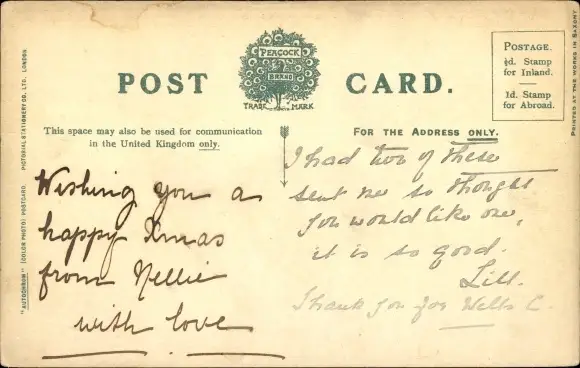 POST CARD.
PEACOCK
BRAND
TRADE MARK
POSTAGE.
½d. Stamp
for Inland.
1d. Stamp
for Abroad.
This space may also be used for communication
in the United Kingdom only.
FOR THE ADDRESS ONLY.
Wishing you a
happy Xmas
from Nellie
with love
I had two of these
sent me so thought
you would like one,
it is so good.
Lill.
Thank you for Wells C.
"AUTOCHROM" (COLOR PHOTO) POSTCARD. PICTORIAL STATIONERY CO. LTD. LONDON.
PRINTED AT THE WORKS IN SAXONY